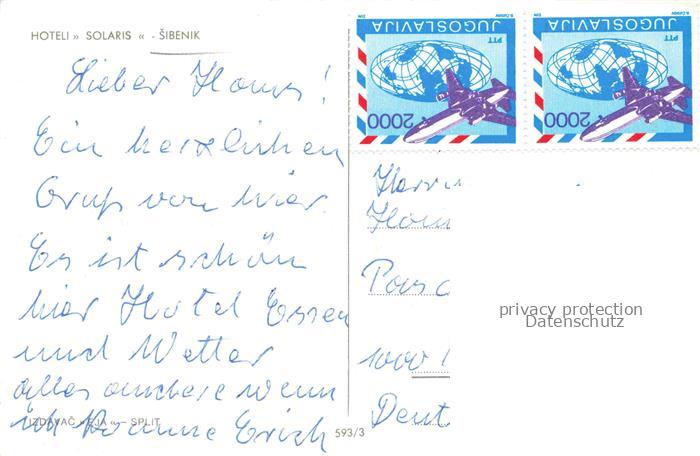 HOTELI » SOLARIS « - ŠIBENIK
Lieber Hans!
Ein herzlichen
Gruß von hier.
Es ist schön
hier Hotel Essen
und Wetter
alles andere wenn
ich komme Erich
IZDAVAČ »EJA« – SPLIT
593/3
JUGOSLAVIJA
PTT
2000
JUGOSLAVIJA
PTT
2000
Herrn
1000
privacy protection
Datenschutz